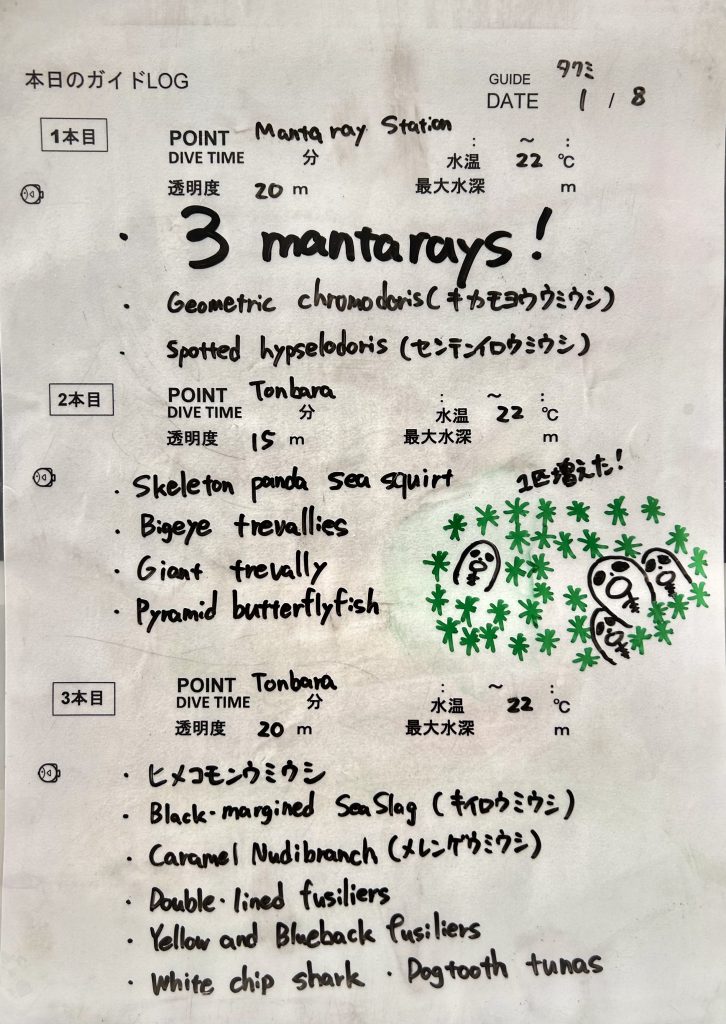 本日のガイドLOG
GUIDE タクミ
DATE 1 / 8
1本目
POINT Manta ray Station : ～ :
DIVE TIME 分 水温 22 ℃
透明度 20 m 最大水深 m
・ 3 mantarays!
・ Geometric chromodoris (キカモヨウウミウシ)
・ Spotted hypselodoris (センテンイロウミウシ)
2本目
POINT Tonbara : ～ :
DIVE TIME 分 水温 22 ℃
透明度 15 m 最大水深 m
・ Skeleton panda sea squirt
1匹増えた!
・ Bigeye trevallies
・ Giant trevally
・ Pyramid butterflyfish
3本目
POINT Tonbara : ～ :
DIVE TIME 分 水温 22 ℃
透明度 20 m 最大水深 m
・ ヒメコモンウミウシ
・ Black-margined Sea Slag (キイロウミウシ)
・ Caramel Nudibranch (メレンゲウミウシ)
・ Double-lined fusiliers
・ Yellow and Blueback fusiliers
・ White chip shark ・ Dogtooth tunas